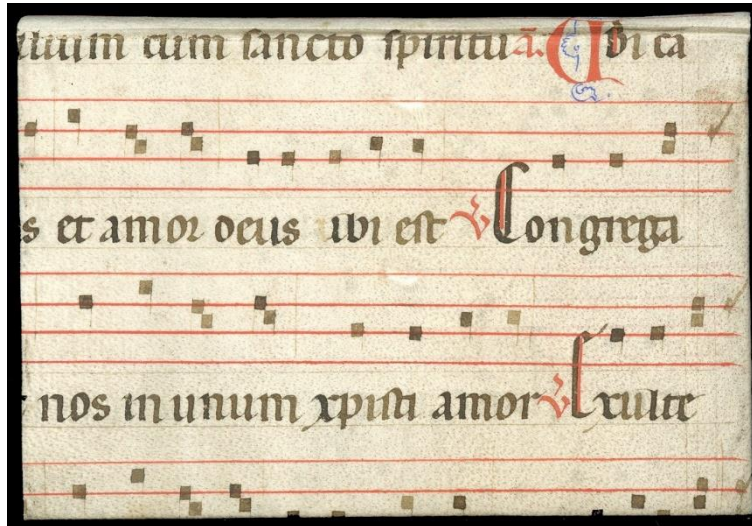 cum sancto spiritu a. Ubi ca
s et amor deus ibi est ℣ Congrega
nos in unum xpisti amor ℣ Exulte